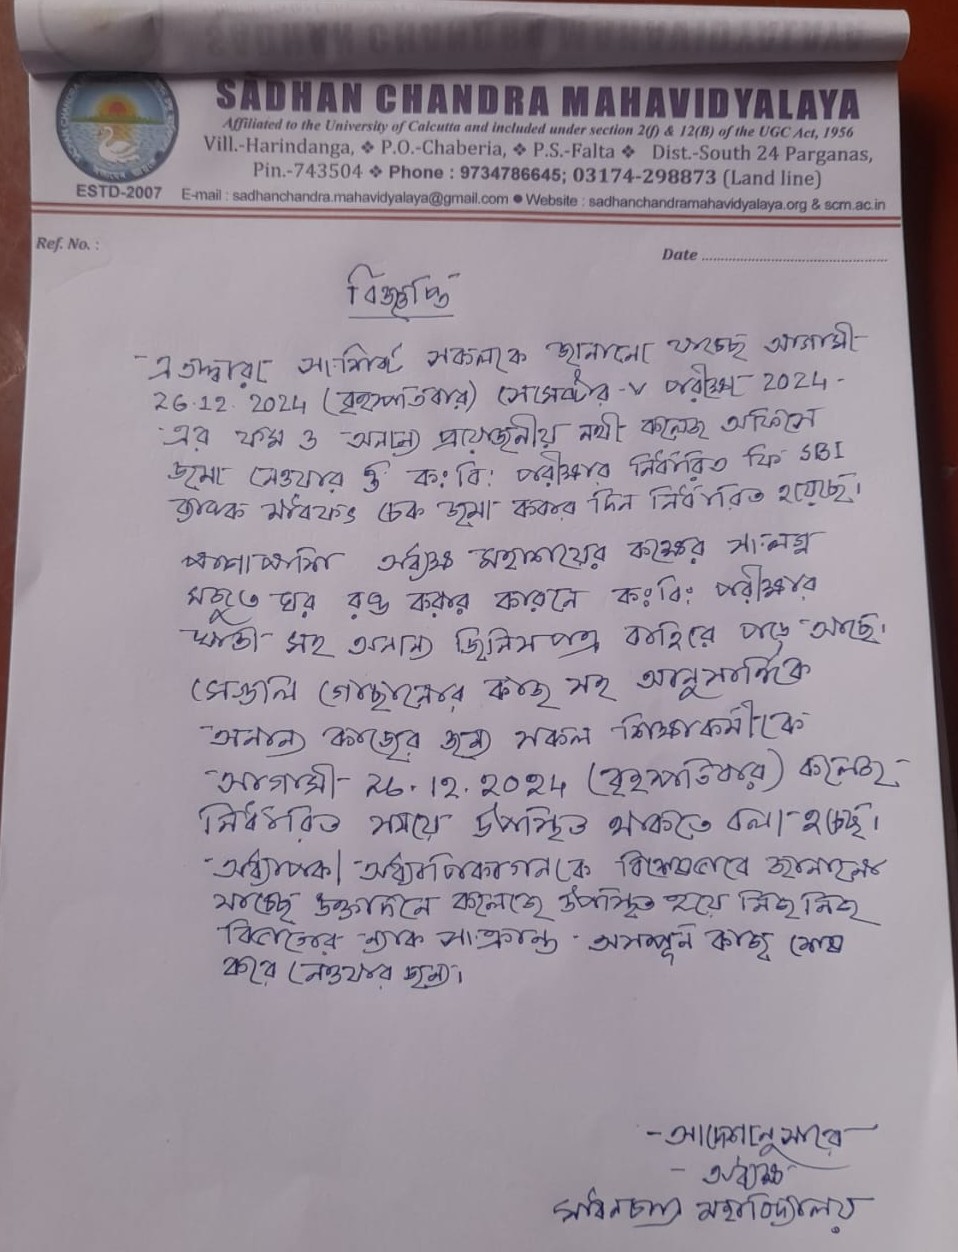 SADHAN CHANDRA MAHAVIDYALAYA
Affiliated to the University of Calcutta and included under section 2(f) & 12(B) of the UGC Act, 1956
Vill.-Harindanga, ❖ P.O.-Chaberia, ❖ P.S.-Falta ❖ Dist.-South 24 Parganas,
Pin.-743504 ❖ Phone : 9734786645; 03174-298873 (Land line)
ESTD-2007
E-mail : sadhanchandra.mahavidyalaya@gmail.com ● Website : sadhanchandramahavidyalaya.org & scm.ac.in
Ref. No. :
Date
বিজ্ঞপ্তি
এতদ্দ্বারা সংশ্লিষ্ট সকলকে জানানো যাচ্ছে আগামী
26.12.2024 (বৃহস্পতিবার) সেমেস্টার-V পরীক্ষা 2024-
এর ফর্ম ও অন্যান্য প্রয়োজনীয় নথী কলেজ অফিসে
জমা নেওয়ার ও ক:বি: পরীক্ষার নির্ধারিত ফি SBI
ব্যাংক মারফৎ চেক জমা করার দিন নির্ধারিত হয়েছে।
পাশাপাশি অধ্যক্ষ মহাশয়ের কক্ষের সংলগ্ন
মজুত ঘর রঙ করার কারনে ক:বি: পরীক্ষার
খাতা সহ অন্যান্য জিনিসপত্র বাহিরে পড়ে আছে।
সেগুলি গোছানোর কাজ সহ আনুসাঙ্গিক
অন্যান্য কাজের জন্য সকল শিক্ষাকর্মীকে
আগামী 26.12.2024 (বৃহস্পতিবার) কলেজে
নির্ধারিত সময়ে উপস্থিত থাকতে বলা হচ্ছে।
অধ্যাপক/অধ্যাপিকাগনকে বিশেষভাবে জানানো
যাচ্ছে উক্তদিনে কলেজে উপস্থিত হয়ে নিজ নিজ
বিভাগের ন্যাক সংক্রান্ত অসম্পূর্ন কাজ শেষ
করে নেওয়ার জন্য।
আদেশানুসারে
অধ্যক্ষ
সাধনচন্দ্র মহাবিদ্যালয়